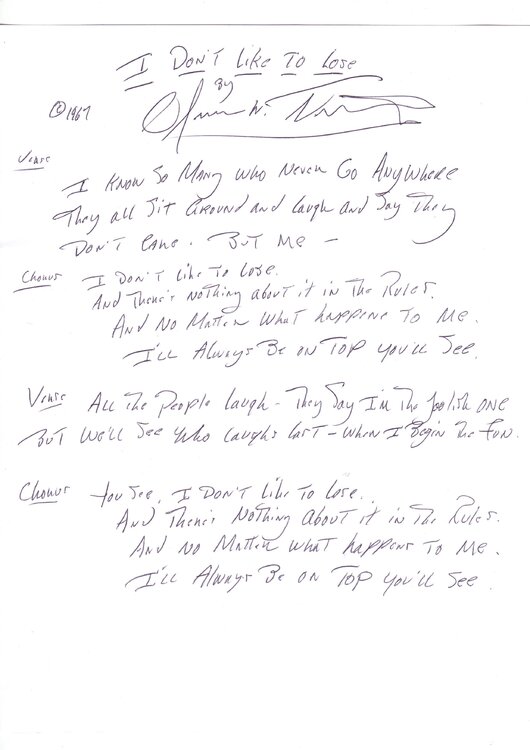 I Don't Like To Lose
By
W.
©1967
Verse
I Know So Many who Never Go Anywhere
They all Sit Around and Laugh and Say They
Don't Care. But Me —
Chorus I Don't Like To Lose.
And There's nothing about it in The Rules.
And No Matter What happens To Me.
I'll Always Be on Top you'll See.
Verse All The People Laugh - They Say I'm The foolish one
But We'll See Who Laughs Last - When I Begin The Fun.
Chorus You See, I Don't Like To Lose.
And There's Nothing About it in The Rules.
And No Matter What happens To Me.
I'll Always Be on Top you'll See.